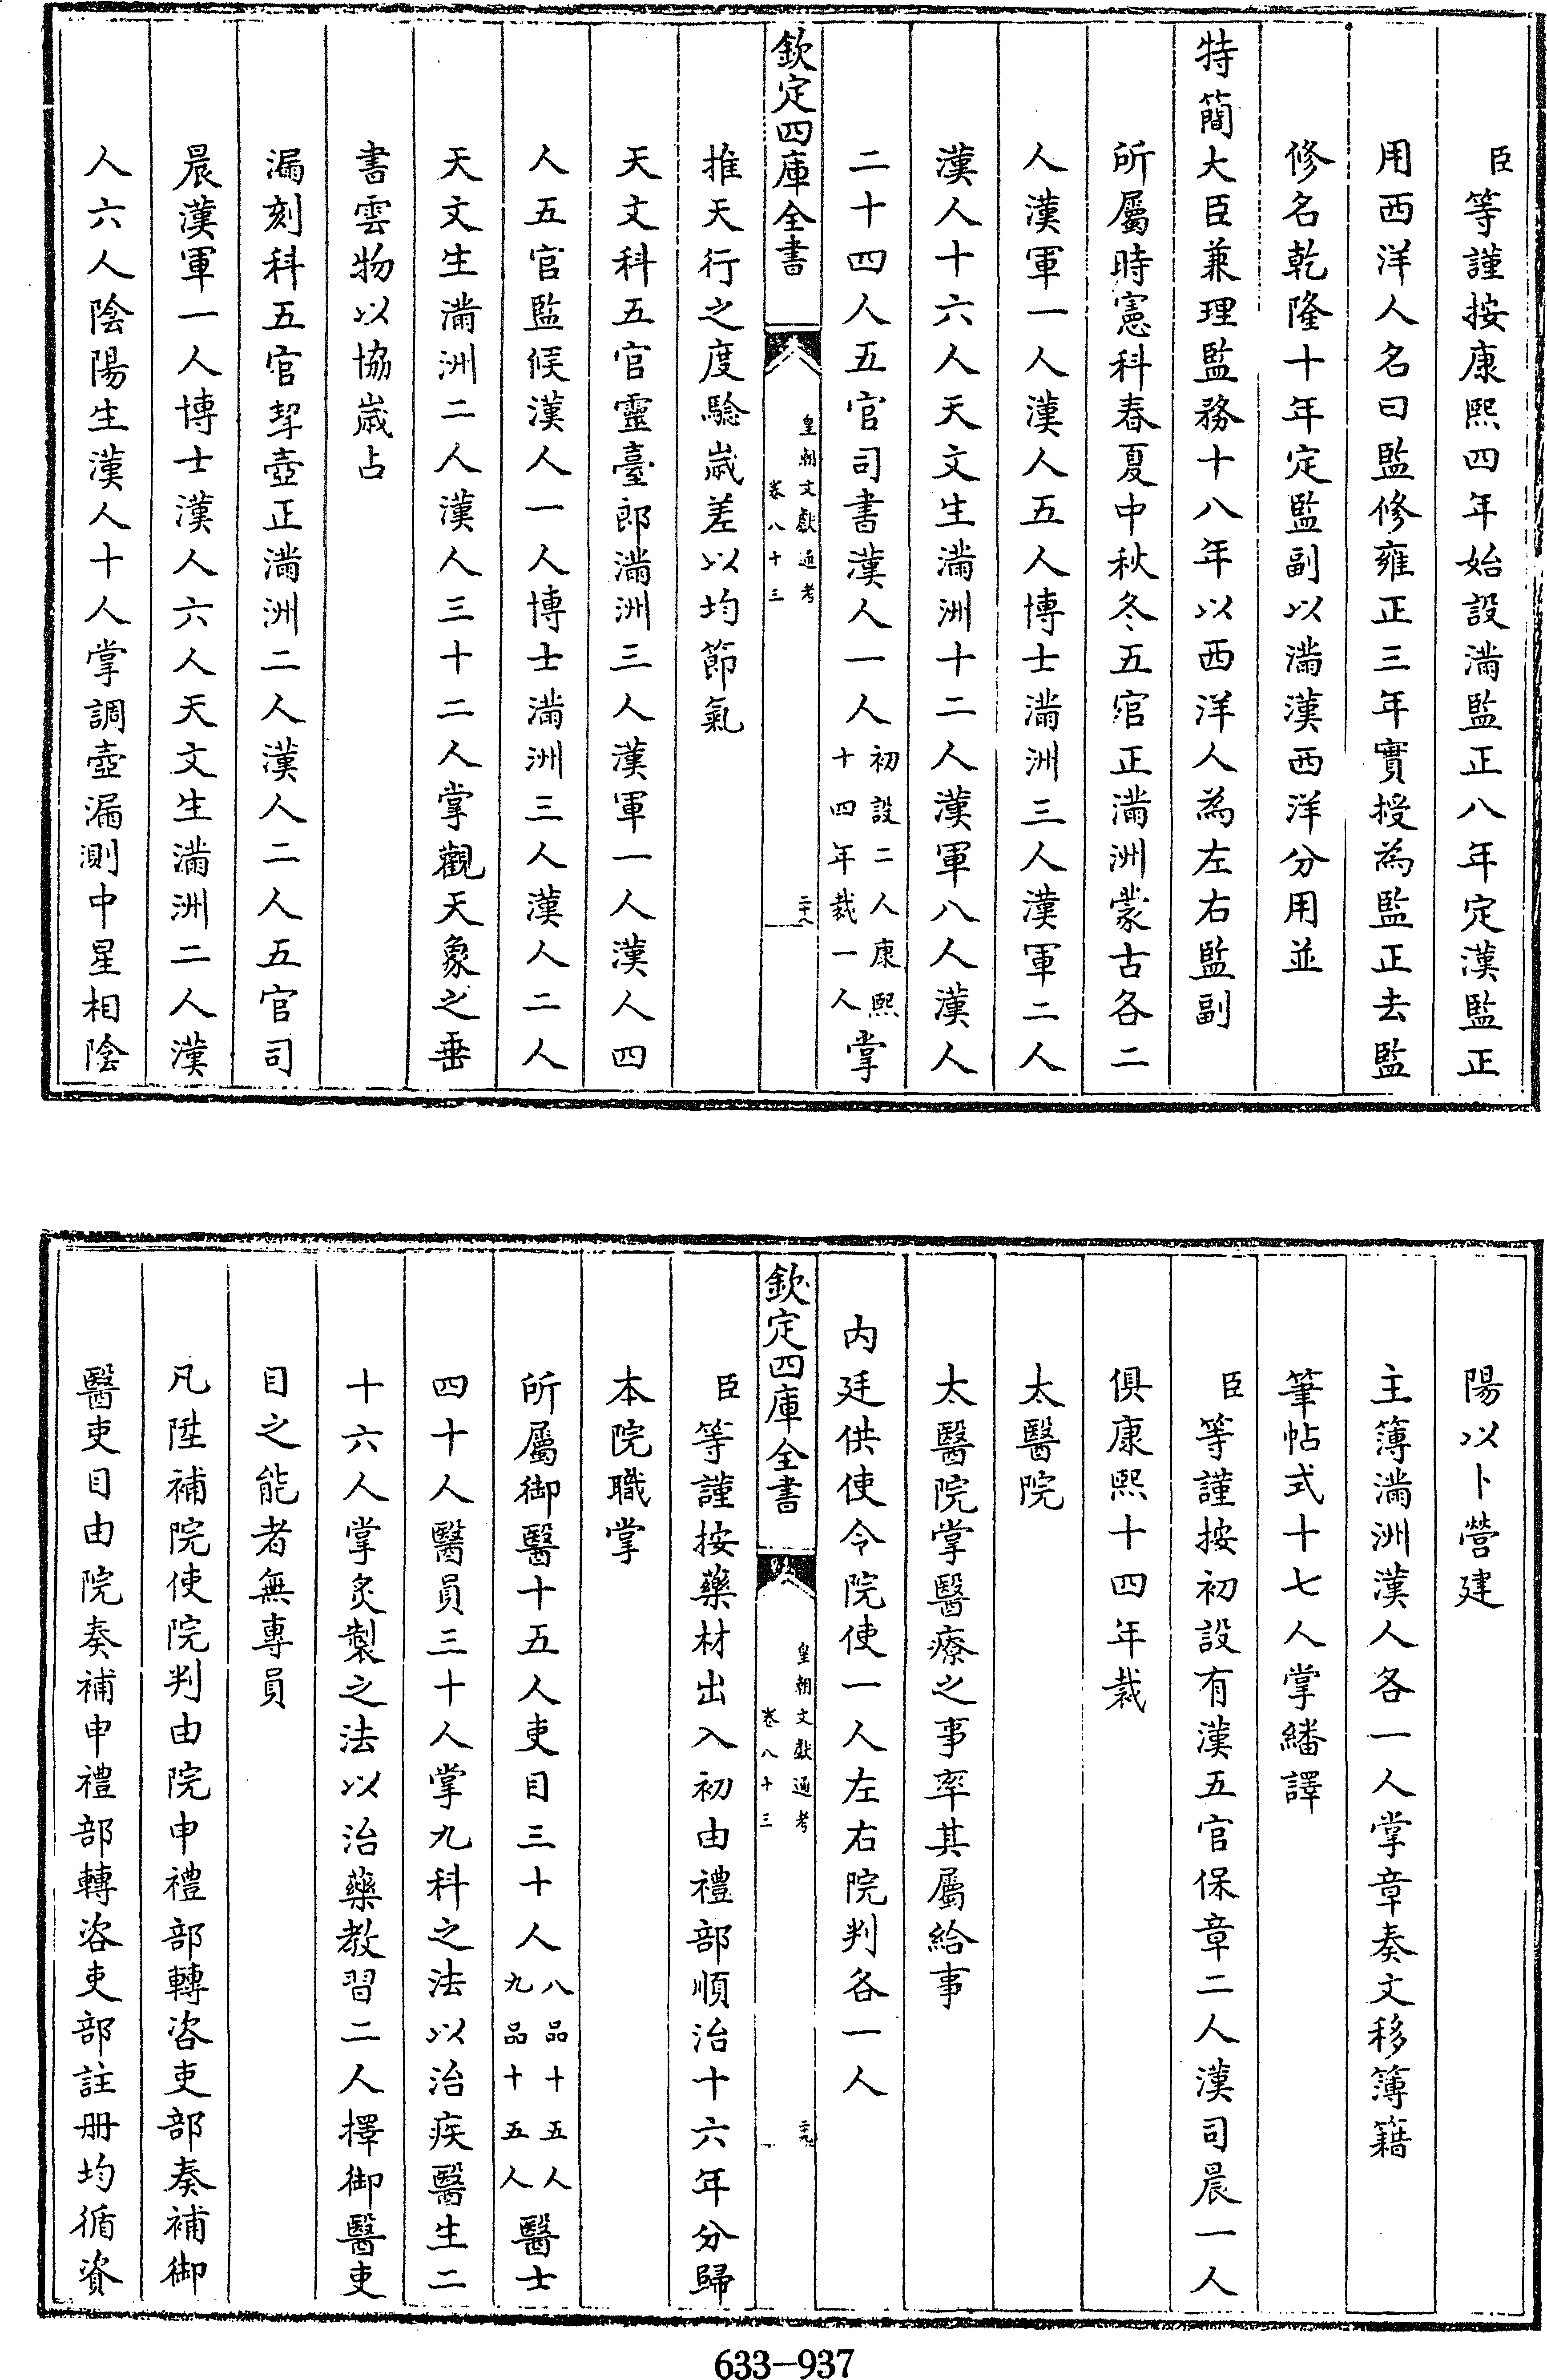 臣等謹按康熙四年始設滿監正八年定漢監正
用西洋人名曰監修雍正三年實授為監正去監
修名乾隆十年定監副以滿漢西洋分用並
特簡大臣兼理監務十八年以西洋人為左右監副
所屬時憲科春夏中秋冬五官正滿洲蒙古各二
人漢軍一人漢人五人博士滿洲三人漢軍二人
漢人十六人天文生滿洲十二人漢軍八人漢人
二十四人五官司書漢人一人初設二人康熙十四年裁一人掌
欽定四庫全書
皇朝文獻通考
卷八十三
二十八
推天行之度驗歲差以均節氣
天文科五官靈臺郎滿洲三人漢軍一人漢人四
人五官監候漢人一人博士滿洲三人漢人二人
天文生滿洲二人漢人三十二人掌觀天象之垂
書雲物以協歲占
漏刻科五官挈壺正滿洲二人漢人二人五官司
晨漢軍一人博士漢人六人天文生滿洲二人漢
人六人陰陽生漢人十人掌調壺漏測中星相陰
陽以卜營建
主簿滿洲漢人各一人掌章奏文移簿籍
筆帖式十七人掌繙譯
臣等謹按初設有漢五官保章二人漢司晨一人
俱康熙十四年裁
太醫院
太醫院掌醫療之事率其屬給事
內廷供使令院使一人左右院判各一人
欽定四庫全書
皇朝文獻通考
卷八十三
二十九
臣等謹按藥材出入初由禮部順治十六年分歸
本院職掌
所屬御醫十五人吏目三十人八品十五人九品十五人醫士
四十人醫員三十人掌九科之法以治疾醫生二
十六人掌炙製之法以治藥教習二人擇御醫吏
目之能者無專員
凡陞補院使院判由院申禮部轉咨吏部奏補御
醫吏目由院奏補申禮部轉咨吏部註冊均循資
633-937